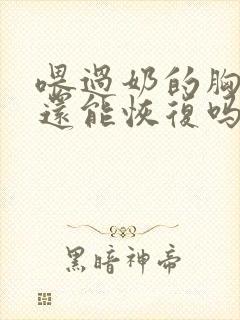 喂過奶的胸
還能恢復吗
黑暗神帝